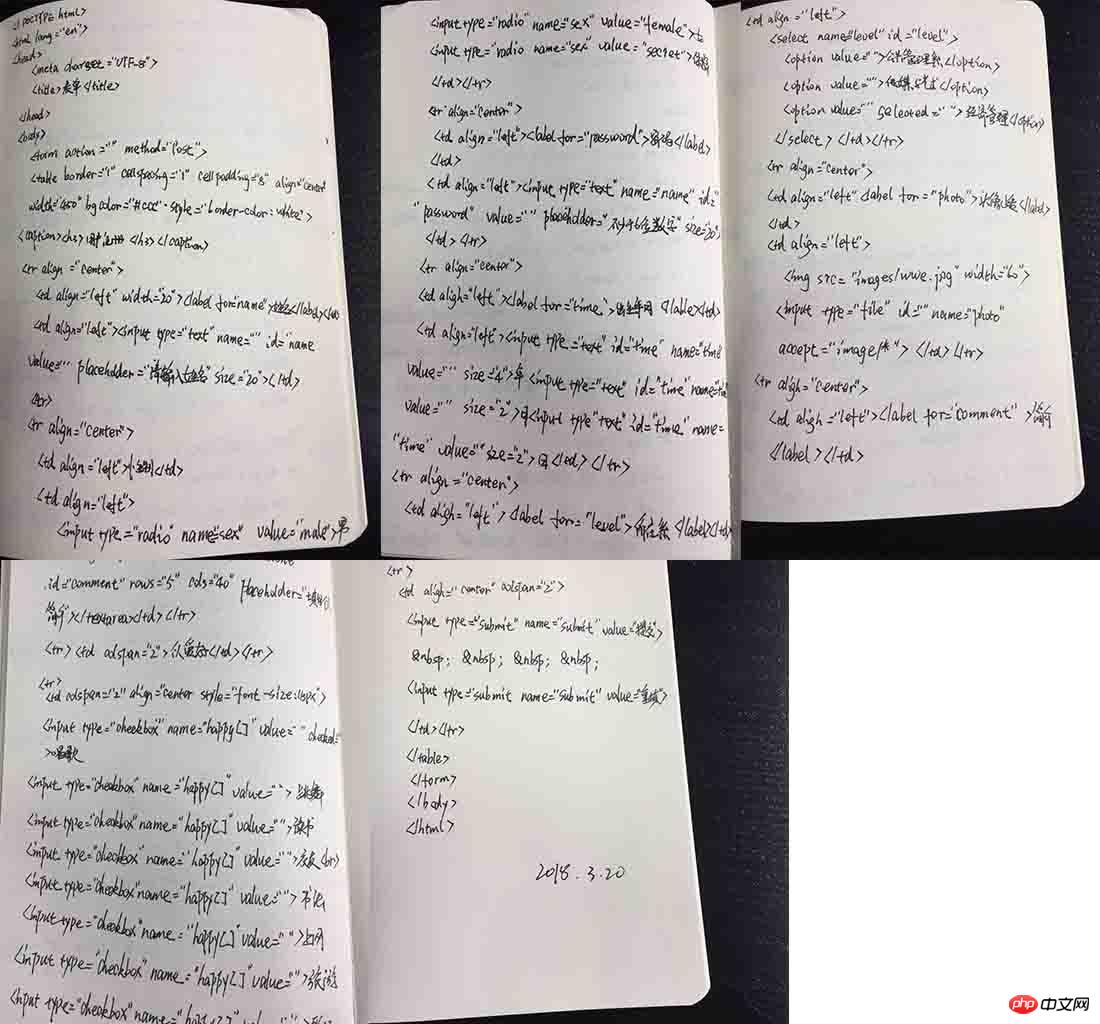 <!DOCTYPE html>
<html lang="en">
<head>
<meta charset="UTF-8">
<title>表单</title>
</head>
<body>
<form action="" method="Post">
<table border="1" cellspacing="1" cellpadding="8" align="center"
width="450" bgcolor="#ccc" style="border-color: white">
<caption><h3>用户注册</h3></caption>
<tr align="center">
<td align="left" width="20"><label for="name">姓名</label></td>
<td align="left"><input type="text" name="" id="name
value="" placehdder="请输入姓名" size="20"></td>
</tr>
<tr align="center">
<td align="left">性别</td>
<td align="left">
<input type="radio" name="sex" value="male">男
<input type="radio" name="sex" value="female">女
<input type="radio name="sex" value="secret">保密
</td></tr>
<tr align="center">
<td align="left"><label for="password">密码</label>
</td>
<td align="left"><input type="text" name="name" id="
password" value="" placeholder="不少于6位数字" size="20">
</td></tr>
<tr align="center">
<td aligh="left"><label for="time">出生年月</lable></td>
<td align="left"><input type="text" id="time" name="time
value="" size="4">年<input type="text" id="time" name="ti
value="" size="2">月<input type"text" id="time" name=
"time" value="" size="2">日</td></tr>
<tr align="center">
<td aligh="left"><label for="level">所在系</label></td>
<td align="left">
<select name="level" id="level">
<option value="">公共管理系</option>
<option value="">传媒与艺术</option>
<option value="" selected="">经济管理</option>
</select></td></tr>
<tr align="center">
<td align="left" <label for="photo"></label>
</td>
<td align="left">
<img src="images/wwe.jpg" width="60">
<input type="file" id="" name="photo"
accept="image/*"></td></tr>
<tr aligh="center">
<td aligh="left"><label for="comment">简介
</label></td>
id="comment" rows="5" cols="40" placeholder="
简介"></textarea></td></tr>
<tr><td colspan="2">个人爱好</td></tr>
<tr>
<td colspan="2" align="center style="font-size:15px">
<input type="checkbox" name="happy[]" value="" checked="
>唱歌
<input type="checkbox" name="happy[]" value="">跳舞
<input type="checkbox" name="happy[]" value="">读书
<input type="checkbox" name="happy[]" value="">交友<br>
<input type="checkbox" name="happy[]" value="">书法
<input type="checkbox" name="happy[]" value="">上网
<input type="checkbox" name="happy[]" value="">旅游
<input type="checkbox" name="happy[]" value="">
<tr>
<td aligh="center" colspan="2">
<input type="submit" name="submit" value="提交">
&nbsp; &nbsp; &nbsp; &nbsp;
<input type="submit name="submit" value="重填">
</td></tr>
</table>
</form>
</body>
</html>
2018.3.20
php 中文网